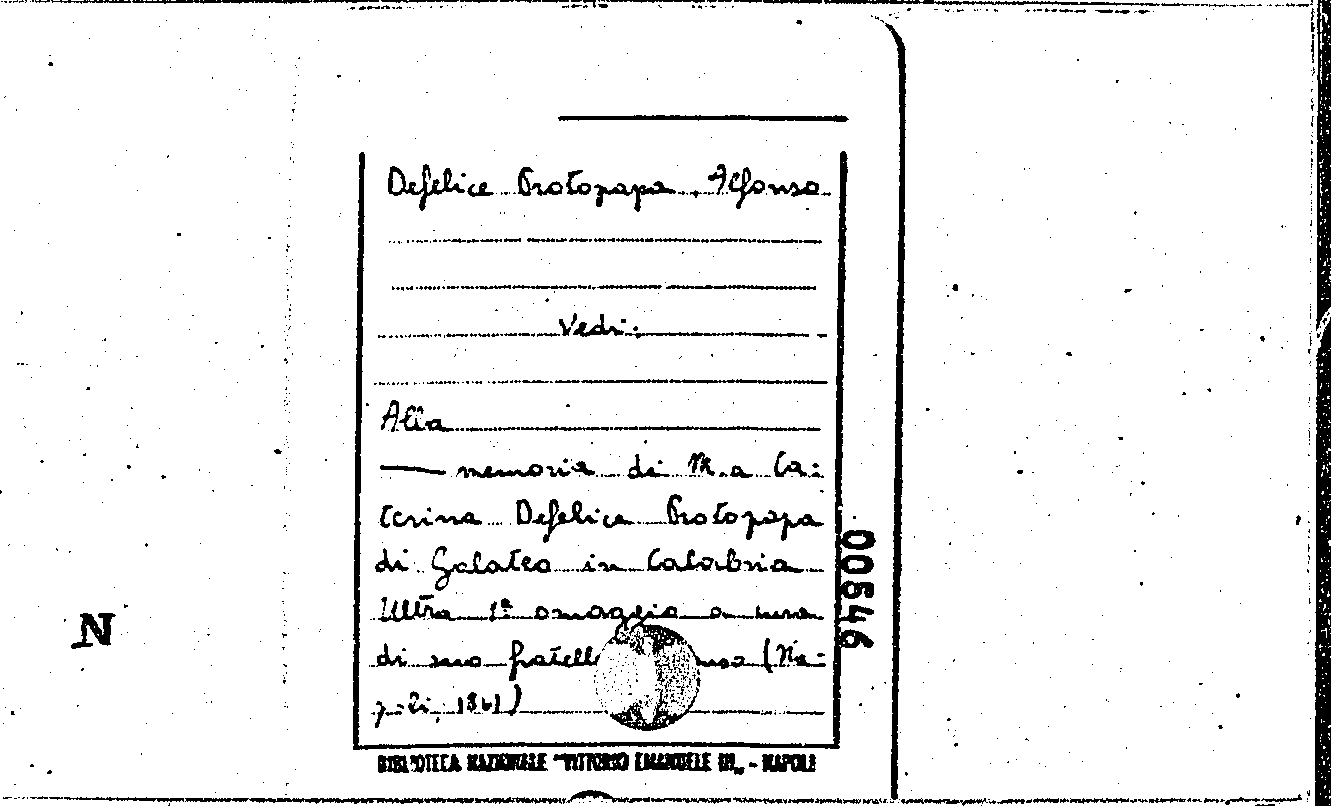 Defelice Protopapa, Alfonso
Vedi:
Alla
memoria di M.a Ca-
terina Defelice Protopapa
di Galatro in Calabria
Ultra 1ª omaggio a cura
di suo fratell nso (Na-
poli, 1861)
BIBLIOTECA NAZIONALE "VITTORIO EMANUELE III" - NAPOLI
000646
N